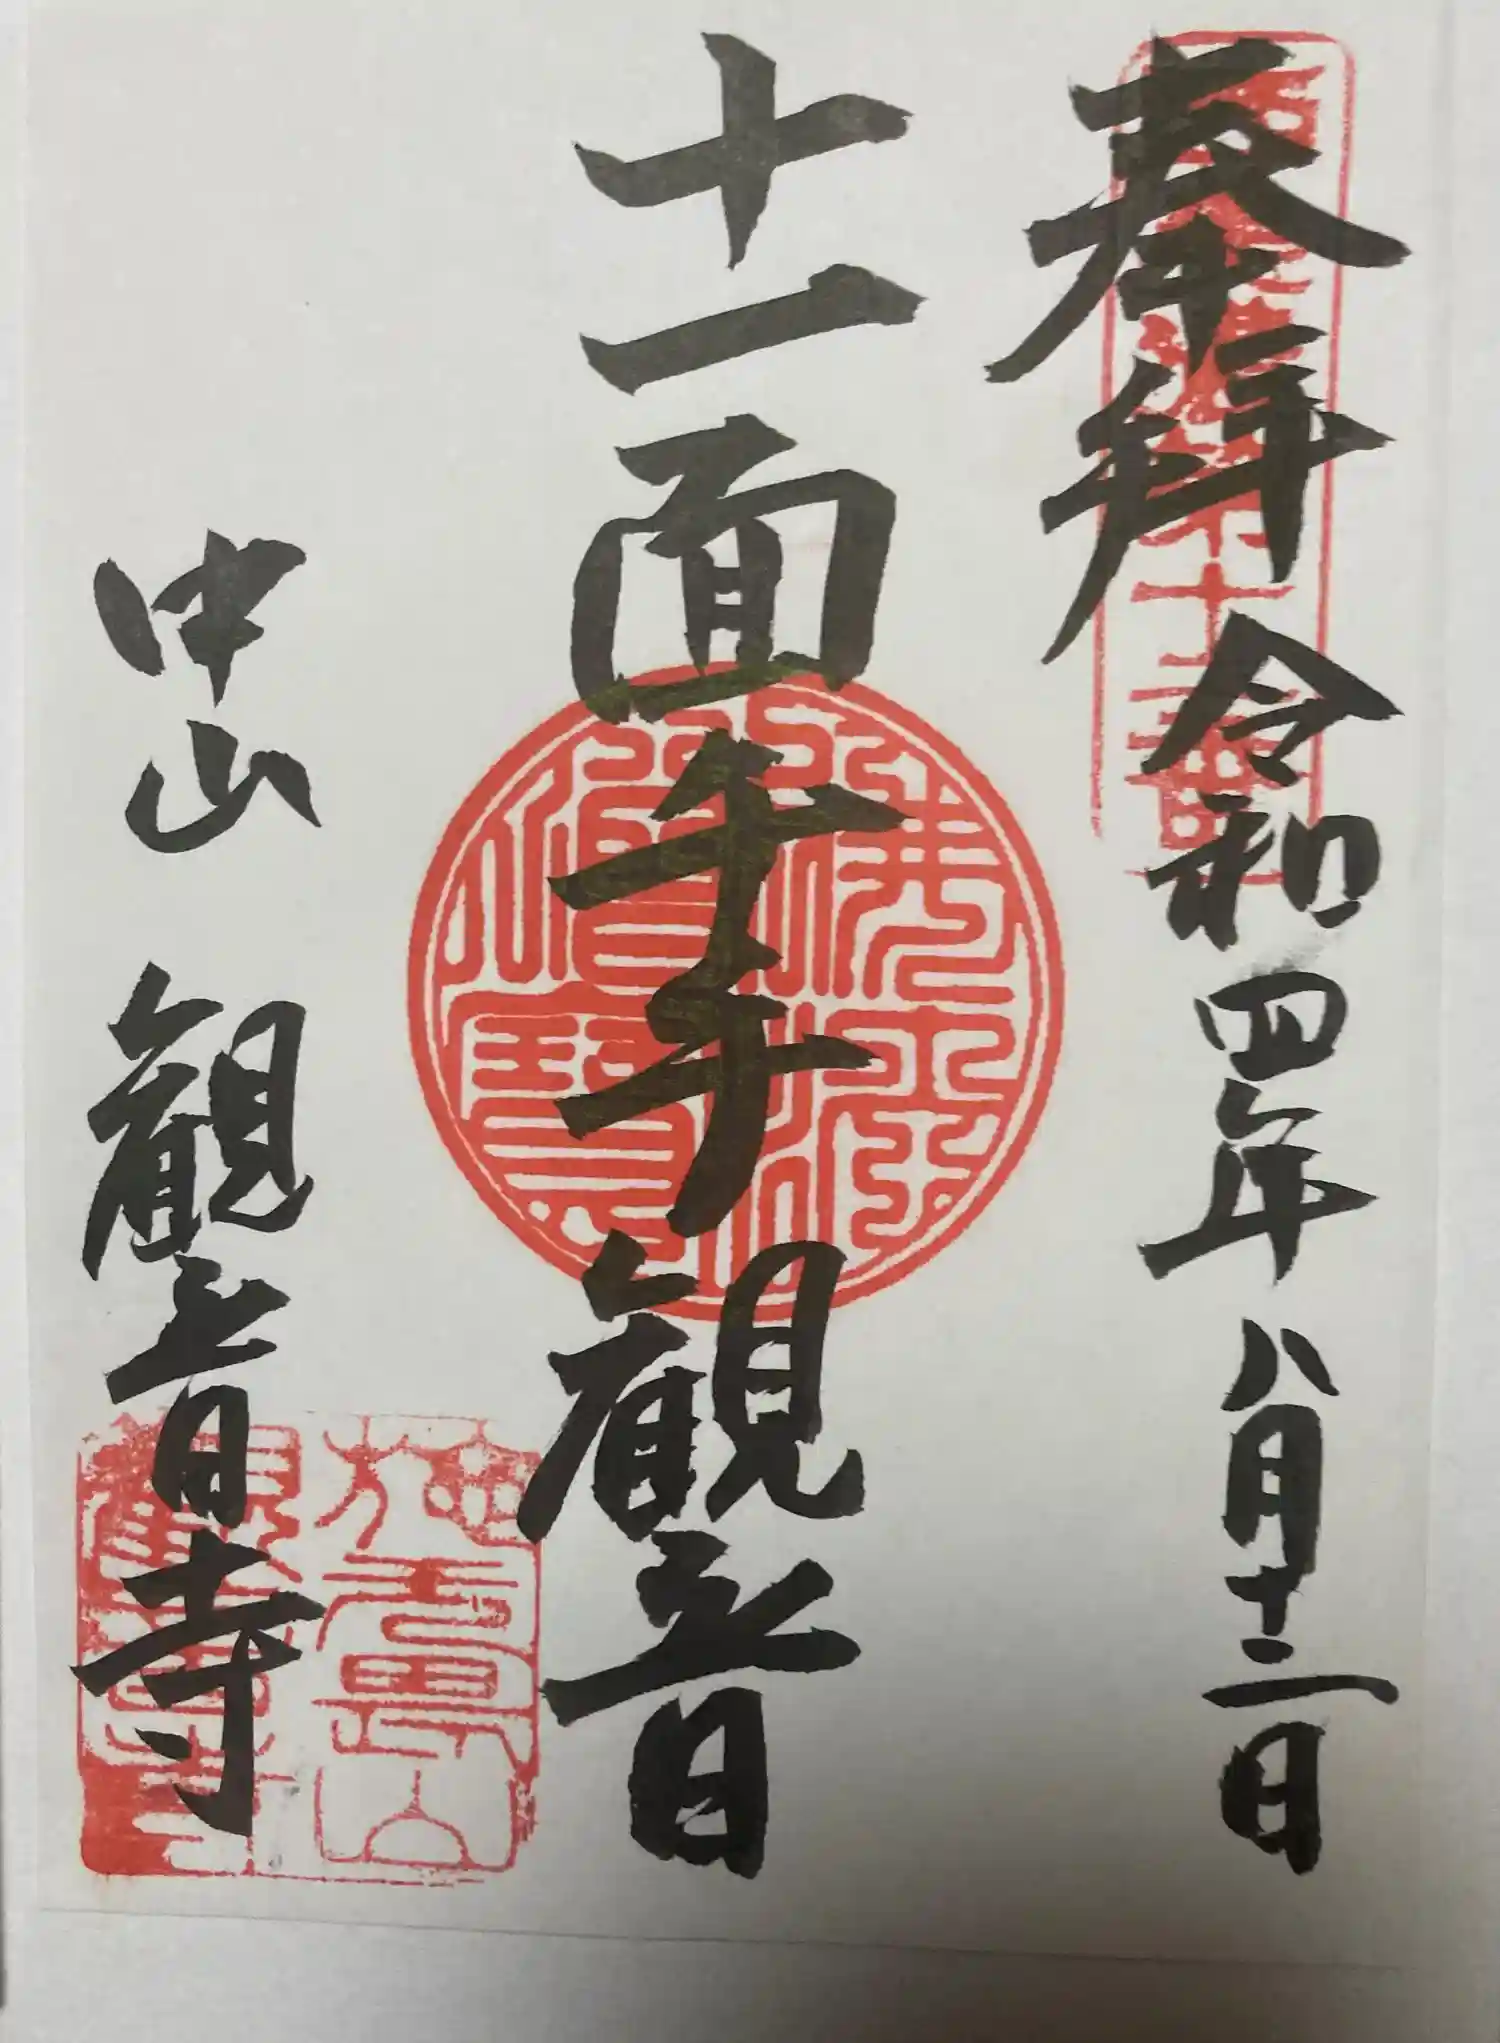 奉拝 令和四年八月十二日
十一面千手観音
佛法僧寶
中山 観音寺